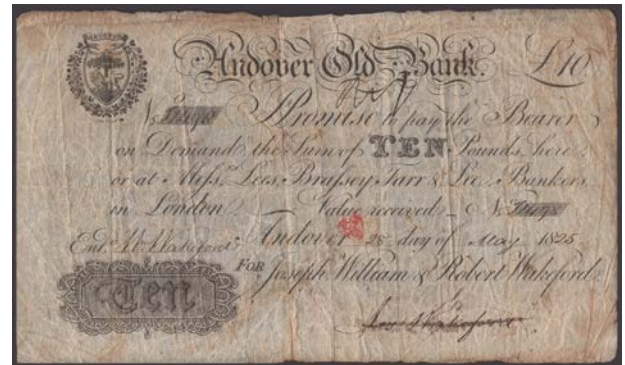 Andover Old Bank. £10
No I Promise to pay the Bearer
on Demand the Sum of TEN Pounds here
or at Messrs. Lees, Brassey, Farr & Lee, Bankers
in London. Value received. No
Andover 28 day of May 1825
Entd. W. Wakeford
For Joseph William & Robert Wakeford
Ten